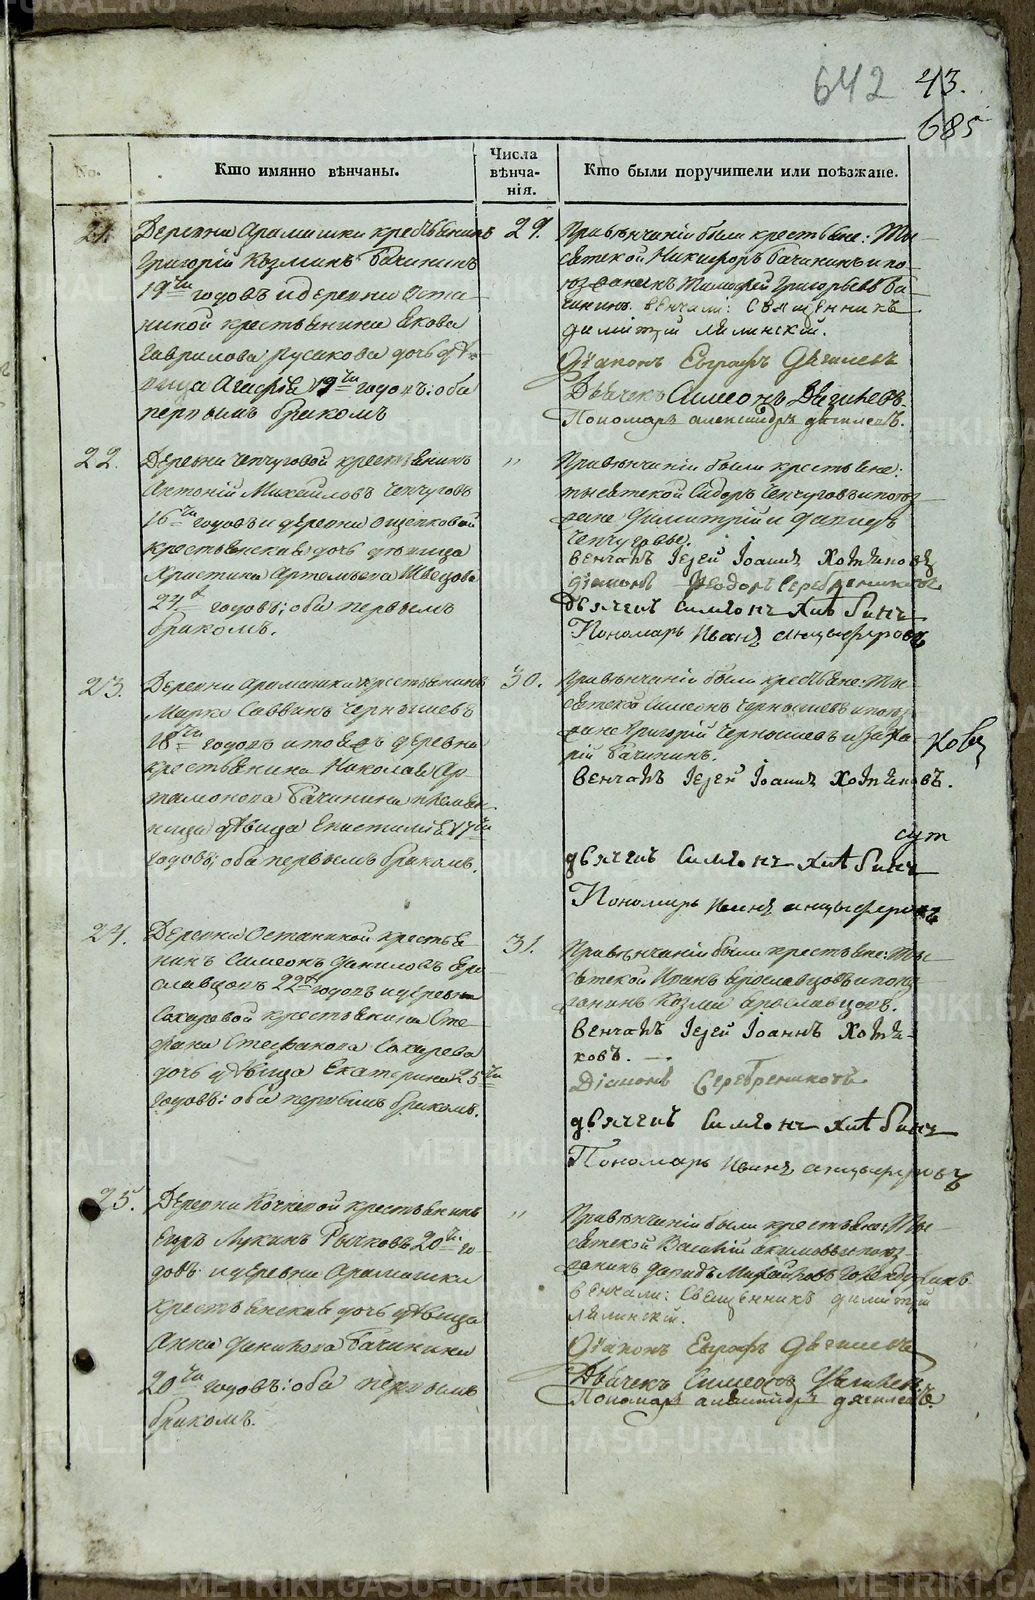 642 43.
685
No.
Кто имянно вѣнчаны.
Числа вѣнча-
нія.
Кто были поручители или поѣзжане.
21.
Деревни Арамашки крестьянинъ
Григорій Козминъ Бачининъ
19ти годовъ и деревни Оста-
ниной крестьянина Якова
Гаврилова Русакова дочь дѣ-
вица Агафія 19ти годовъ: оба
первымъ бракомъ
29.
При вѣнчаніи были крестьяне: Ты-
сяцкой Никифоръ Бачининъ и по-
Тимофей Григорьевъ Ба-
чининъ. вѣнчали: Священникъ
Димитрій Лялинскій.
Діаконъ Евграфъ Дягилевъ
Дьячекъ Симеонъ Дягилевъ.
Пономарь александръ дягилевъ.
22.
Деревни Чепчуговой крестьянинъ
Антоній Михайловъ Чепчуговъ
16ти годовъ и деревни Ощепковой
крестьянская дочь дѣвица
Христина Артемьева Швецова
годовъ; оба первымъ
бракомъ.
"
При вѣнчаніи были крестьяне:
тысяцкой Сидоръ Чепчуговъ и поѣз-
жане Димитрій и Давидъ
Чепчуговы.
вѣнчалъ Іерей Іоаннъ Хотяновъ
діаконъ Феодоръ Серебрениковъ
дьячекъ Симеонъ Хлѣбинъ
Пономарь Иванъ анцыферовъ
23.
Деревни Арамашки крестьянинъ
Марко Саввинъ Чернышевъ
18ти годовъ и тоя жъ деревни
крестьянина Николая Ар-
тамонова Бачинина племян-
ница дѣвица Епистимія 17ти
годовъ; оба первымъ бракомъ.
30.
При вѣнчаніи были крестьяне: Ты-
сяцкой Симеонъ Чернышевъ и поѣз-
жане Григорій Чернышевъ и Заха-
рій Бачининъ.
вѣнчалъ Іерей Іоаннъ Хотяновъ.
дьячекъ Симеонъ Хлѣбинъ
Пономарь Иванъ анцыферовъ
24.
Деревни Останиной крестья-
нинъ Симеонъ Даниловъ Яро-
славцовъ годовъ и деревни
Сохаревой крестьянина Сте-
фана Стефанова Сохарева
дочь дѣвица Екатерина 25ти
годовъ: оба первымъ бракомъ.
31.
При вѣнчаніи были крестьяне: Ты-
сяцкой Иванъ Ярославцовъ и поѣз-
жанинъ Козма Ярославцовъ.
вѣнчалъ Іерей Іоаннъ Хотя-
новъ.
Діаконъ Серебрениковъ
дьячекъ Симеонъ Хлѣбинъ
Пономарь Иванъ анцыферовъ
25.
Деревни Кочневой крестьянинъ
Егоръ Лукинъ Рычковъ 20ти го-
довъ: и деревни Арамашки
крестьянская дочь дѣвица
Анна Данилова Бачинина
20ти годовъ: оба первымъ
бракомъ.
"
При вѣнчаніи были крестьяне: Ты-
сяцкой Василій Якимовъ и поѣз-
жанинъ Давидъ
вѣнчали: Священникъ димитрій
лялинскій.
Діаконъ Евграфъ Дягилевъ
Дьячекъ Симеонъ Дягилевъ.
Пономарь александръ дягилевъ.
METRIKI.GASO-URAL.RU